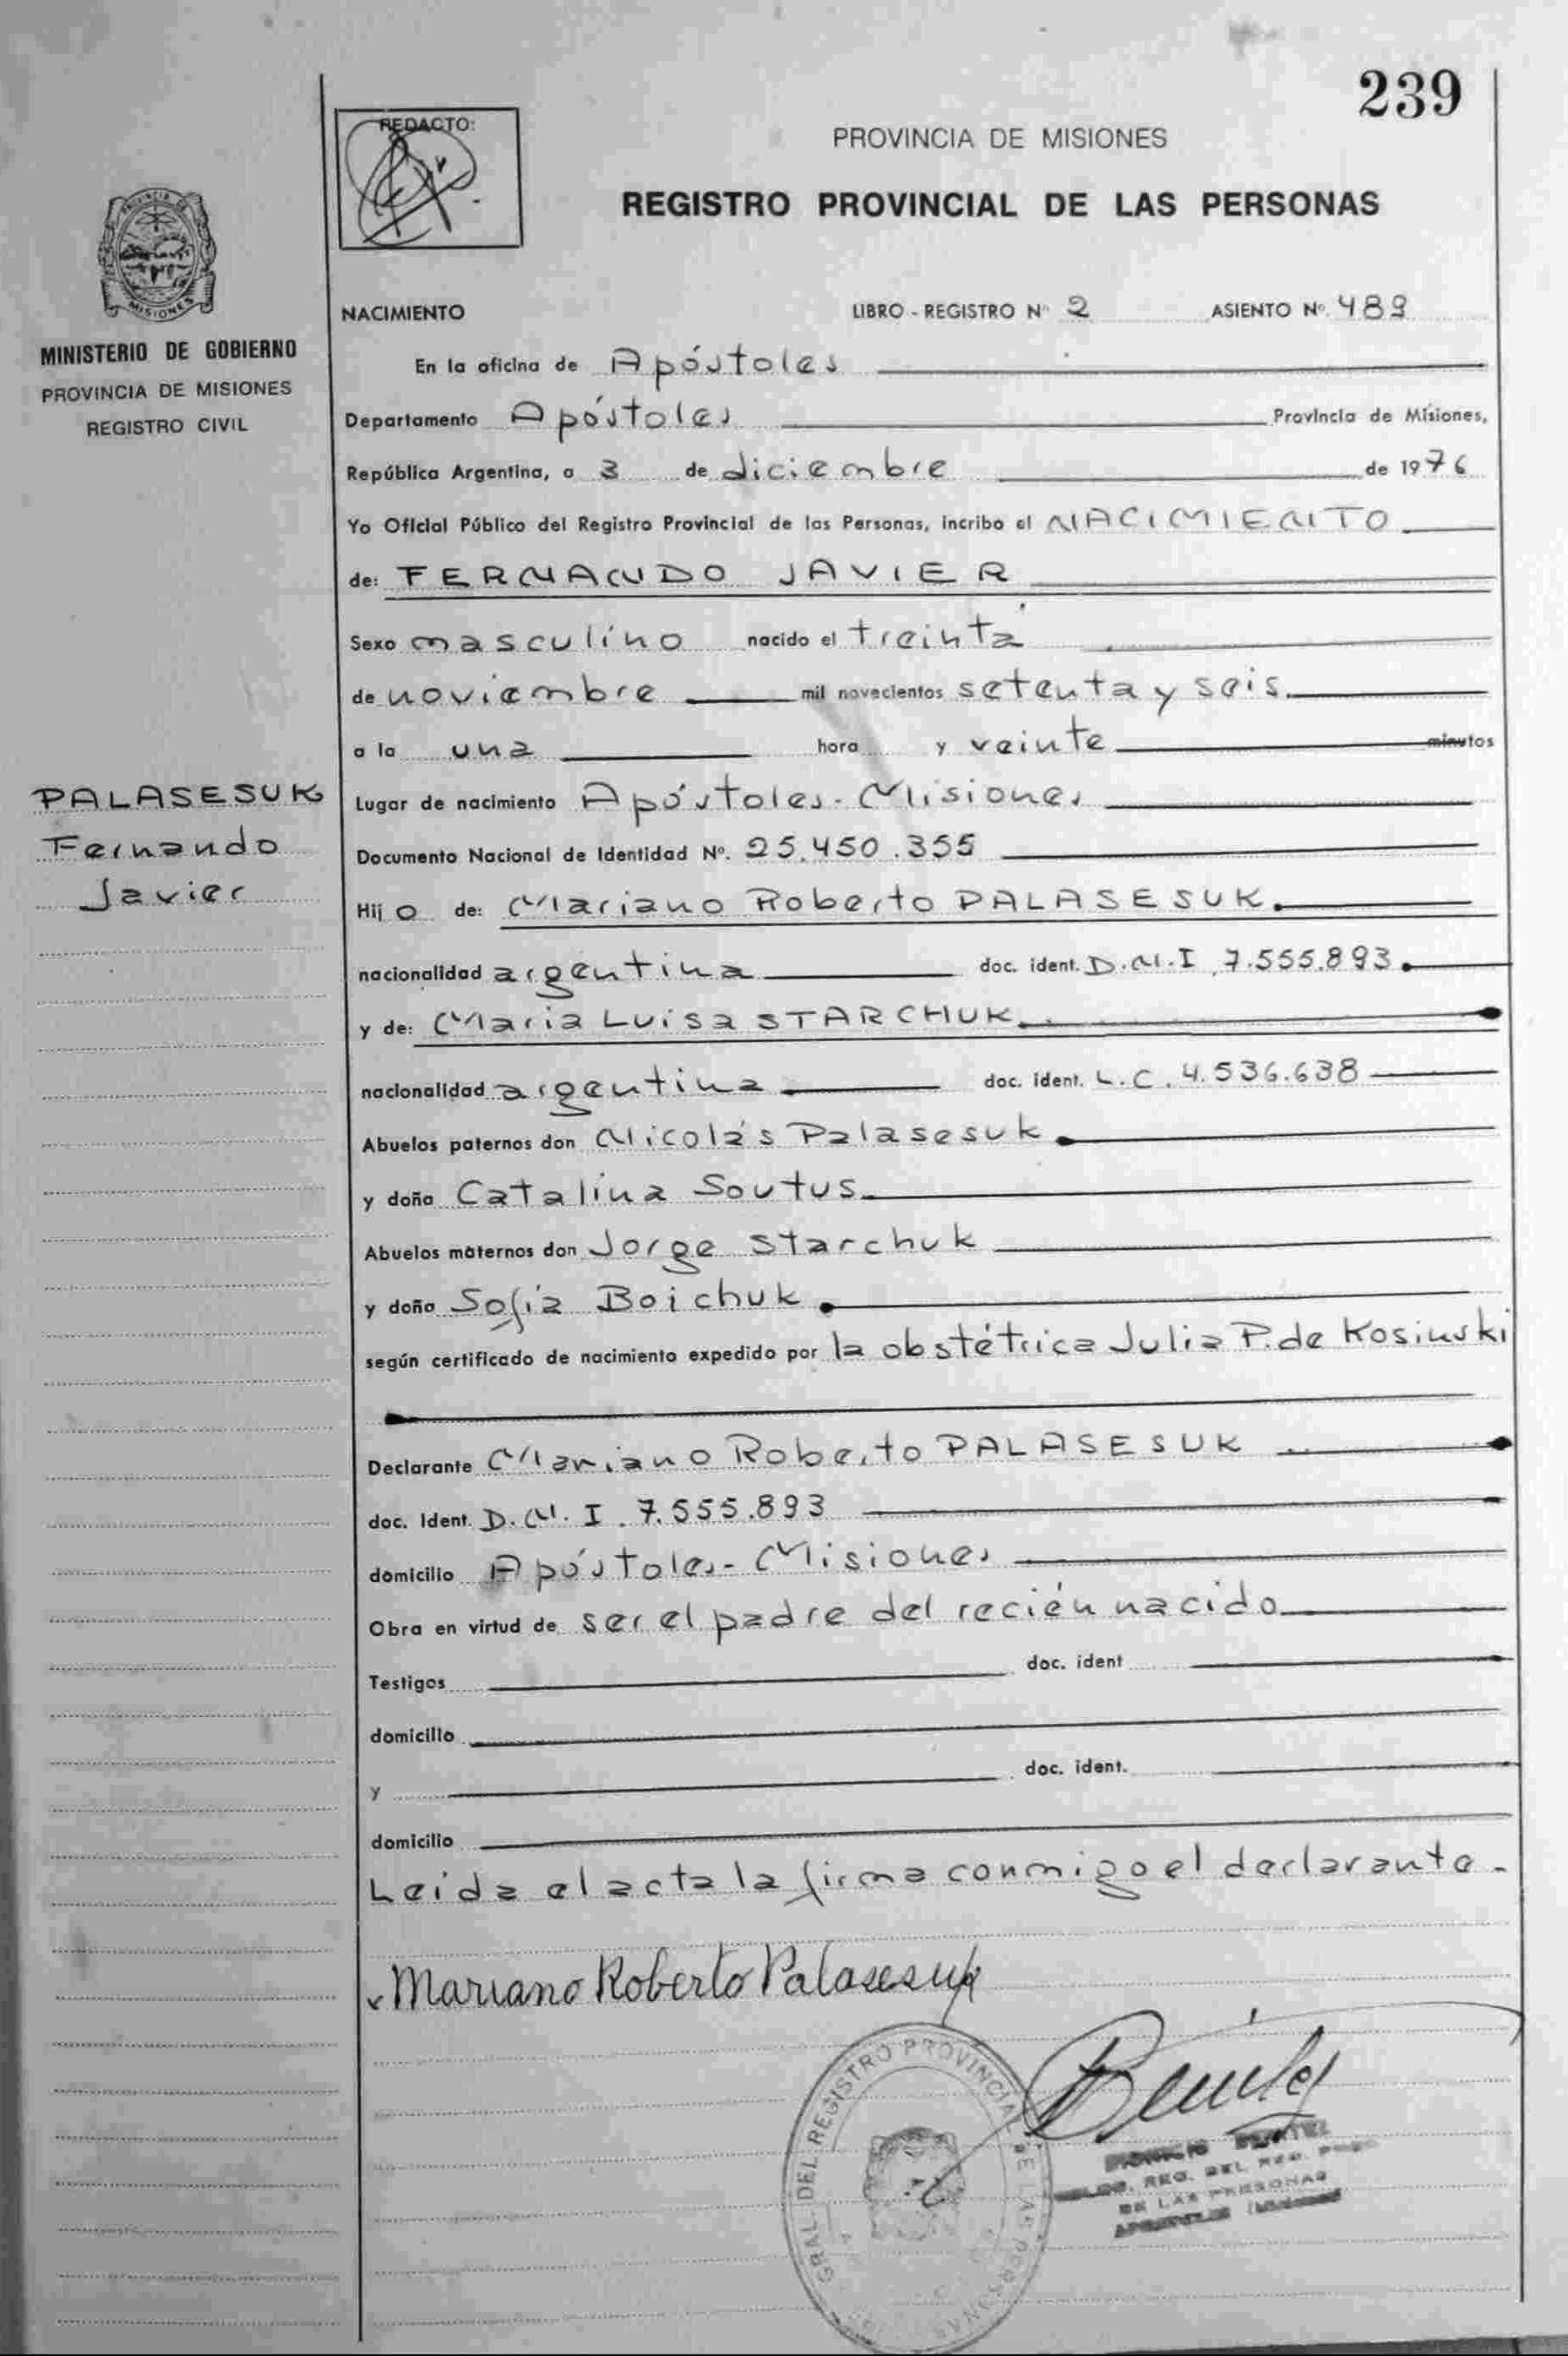 239
REDACTO:
PROVINCIA DE MISIONES
REGISTRO PROVINCIAL DE LAS PERSONAS
MISIONES
MINISTERIO DE GOBIERNO
PROVINCIA DE MISIONES
REGISTRO CIVIL
NACIMIENTO LIBRO - REGISTRO Nº 2 ASIENTO Nº. 489
En la oficina de Apóstoles
Departamento Apóstoles Provincia de Misiones,
República Argentina, a 3 de diciembre de 1976
Yo Oficial Público del Registro Provincial de las Personas, incribo el NACIMIENTO
de: FERNANDO JAVIER
Sexo masculino nacido el treinta
de noviembre mil novecientos setenta y seis
a la una hora y veinte minutos
PALASESUK
Fernando
Javier
Lugar de nacimiento Apóstoles - Misiones
Documento Nacional de Identidad Nº. 25.450.355
Hijo de: Mariano Roberto PALASESUK
nacionalidad argentina doc. ident. D.N.I 7.555.893
y de: Maria Luisa STARCHUK
nacionalidad argentina doc. ident. L.C. 4.536.638
Abuelos paternos don Nicolás Palasesuk
y doña Catalina Soutus
Abuelos maternos don Jorge Starchuk
y doña Sofia Boichuk
según certificado de nacimiento expedido por la obstétrica Julia P. de Kosinski
Declarante Mariano Roberto PALASESUK
doc. Ident. D.N.I. 7.555.893
domicilio Apóstoles - Misiones
Obra en virtud de ser el padre del recién nacido
Testigos doc. ident
domicilio
y doc. ident.
domicilio
Leida el acta la firma conmigo el declarante -
Mariano Roberto Palasesuk
GRAL. DEL REGISTRO PROVINCIAL DE LAS PERSONAS
BENITEZ
REG. DEL REG.
DE LAS PERSONAS